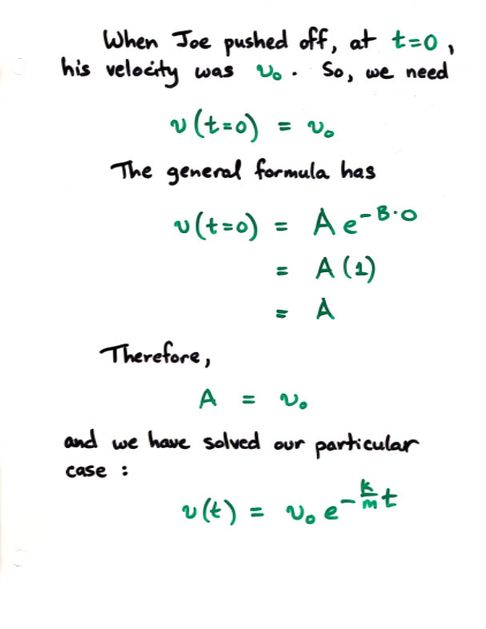 When Joe pushed off, at t=0,
his velocity was v₀. So, we need
v(t=0) = v₀
The general formula has
v(t=0) = A e^{-B·0}
= A(1)
= A
Therefore,
A = v₀
and we have solved our particular
case :
v(t) = v₀ e^{-\frac{k}{m}t}